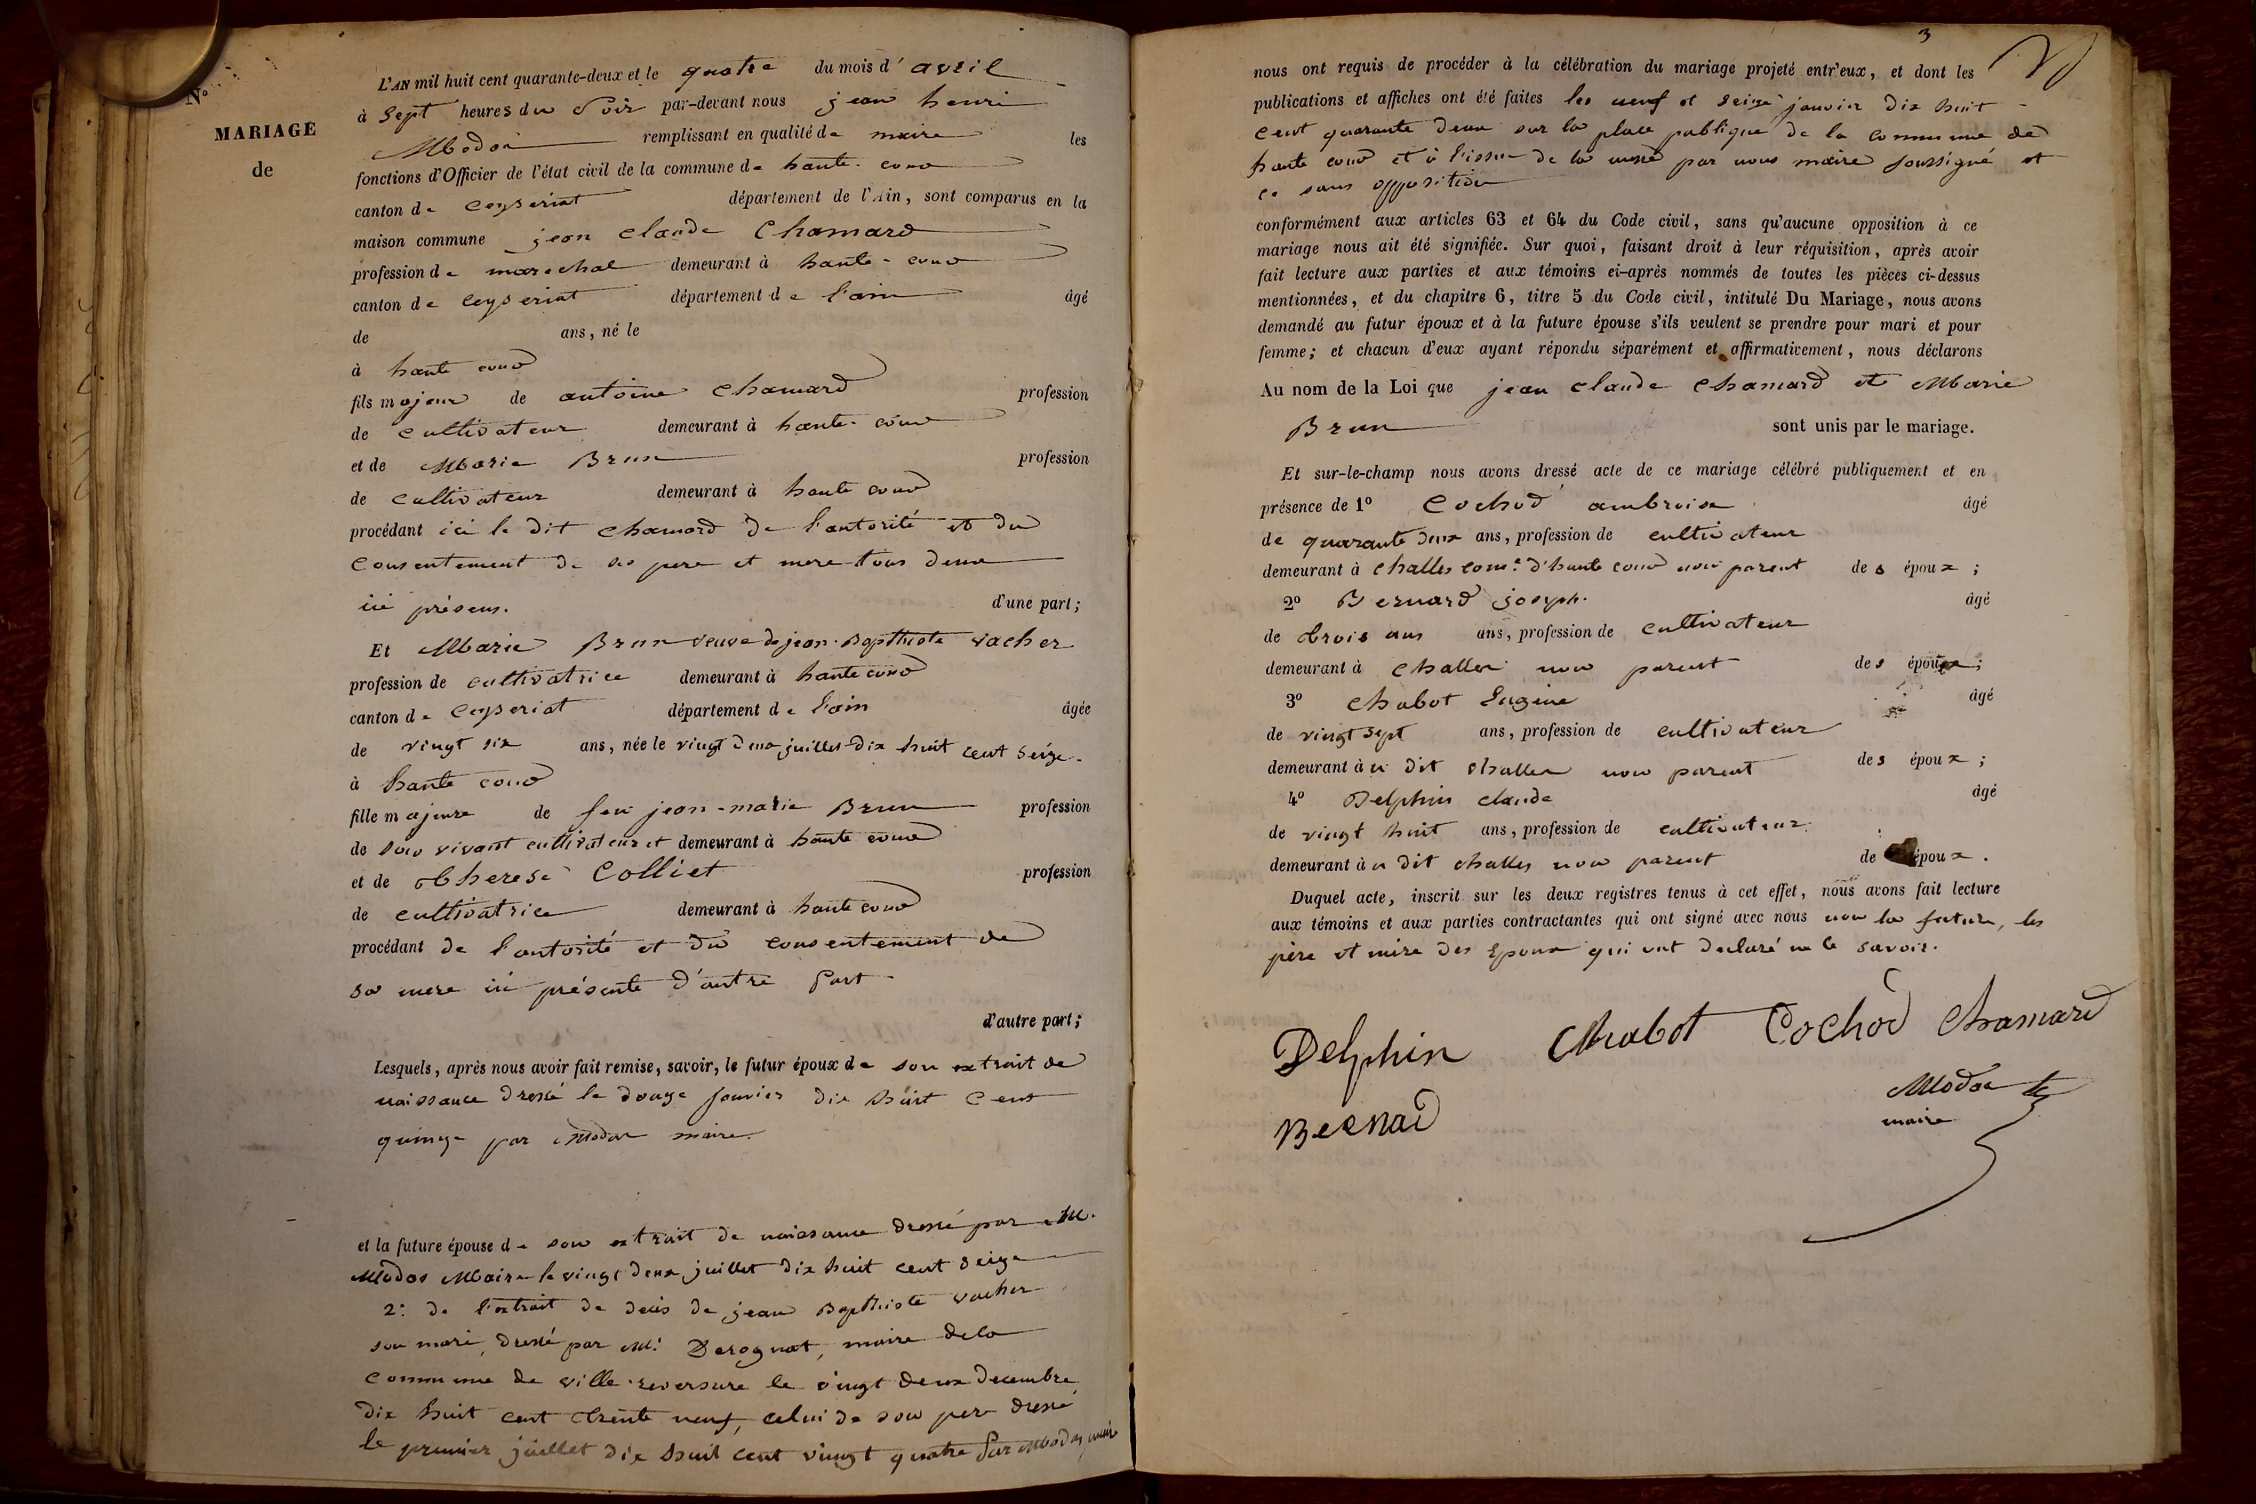 N°
MARIAGE
de
L'AN mil huit cent quarante-deux et le quatre du mois d' avril
à sept heures du soir par-devant nous jean henri
Modas remplissant en qualité de maire les
fonctions d'Officier de l'état civil de la commune de haute cour
canton de ceyseriat département de l'Ain, sont comparus en la
maison commune jean claude Chamard
profession de marechal demeurant à haute-cour
canton de ceyseriat département de l'ain âgé
de ans, né le
à haute cour
fils majeur de antoine chamard profession
de cultivateur demeurant à haute-cour
et de Marie Brun profession
de cultivateur demeurant à haute cour
procédant ici le dit chamard de l'autorité et du
consentement de ses pere et mere tous deux
ici présens. d'une part;
Et Marie Brun veuve de jean Bapthiste vacher
profession de cultivatrice demeurant à haute cour
canton de ceyseriat département de l'ain âgée
de vingt six ans, née le vingt deux juillet dix huit cent seize.
à haute cour
fille majeure de feu jean-marie Brun profession
de son vivant cultivateur et demeurant à haute cour
et de therese Colliet profession
de cultivatrice demeurant à haute cour
procédant de l'autorité et du consentement de
sa mere ici présente d'autre part
d'autre part;
Lesquels, après nous avoir fait remise, savoir, le futur époux de son extrait de
naissance dressé le douze janvier dix huit cent
quinze par Modas maire.
et la future épouse de son extrait de naissance dressé par M.
Modas Maire le vingt deux juillet dix huit cent seize
2: de l'extrait de décès de jean Bapthiste vacher
son mari, dressé par M. Derognat, maire de la
commune de ville-reversure le vingt deux decembre
dix huit cent trente neuf, celui de son pere dressé
le premier juillet dix huit cent vingt quatre par Modas, maire
3
nous ont requis de procéder à la célébration du mariage projeté entr'eux, et dont les
publications et affiches ont été faites les neuf et seize janvier dix huit
cent quarante deux sur la place publique de la commune de
haute cour et à l'issue de la messe par nous maire soussigné et
ce sans opposition
conformément aux articles 63 et 64 du Code civil, sans qu'aucune opposition à ce
mariage nous ait été signifiée. Sur quoi, faisant droit à leur réquisition, après avoir
fait lecture aux parties et aux témoins ci-après nommés de toutes les pièces ci-dessus
mentionnées, et du chapitre 6, titre 5 du Code civil, intitulé Du Mariage, nous avons
demandé au futur époux et à la future épouse s'ils veulent se prendre pour mari et pour
femme; et chacun d'eux ayant répondu séparément et affirmativement, nous déclarons
Au nom de la Loi que jean claude chamard et Marie
Brun sont unis par le mariage.
Et sur-le-champ nous avons dressé acte de ce mariage célébré publiquement et en
présence de 1° Cochod ambroise âgé
de quarante deux ans, profession de cultivateur
demeurant à challes com.e d'haute cour non parent des époux;
2° Bernard joseph. âgé
de trois ans ans, profession de cultivateur
demeurant à challes non parent des époux;
3° chabot Eugine âgé
de vingt sept ans, profession de cultivateur
demeurant à u dit challes non parent des époux;
4° Delphin claude âgé
de vingt huit ans, profession de cultivateur
demeurant à u dit challes non parent de époux.
Duquel acte, inscrit sur les deux registres tenus à cet effet, nous avons fait lecture
aux témoins et aux parties contractantes qui ont signé avec nous non la future, les
père et mère des Epoux qui ont declaré ne le savoir.
Delphin Chabot Cochod Chamard
Modas
Bernard
maire